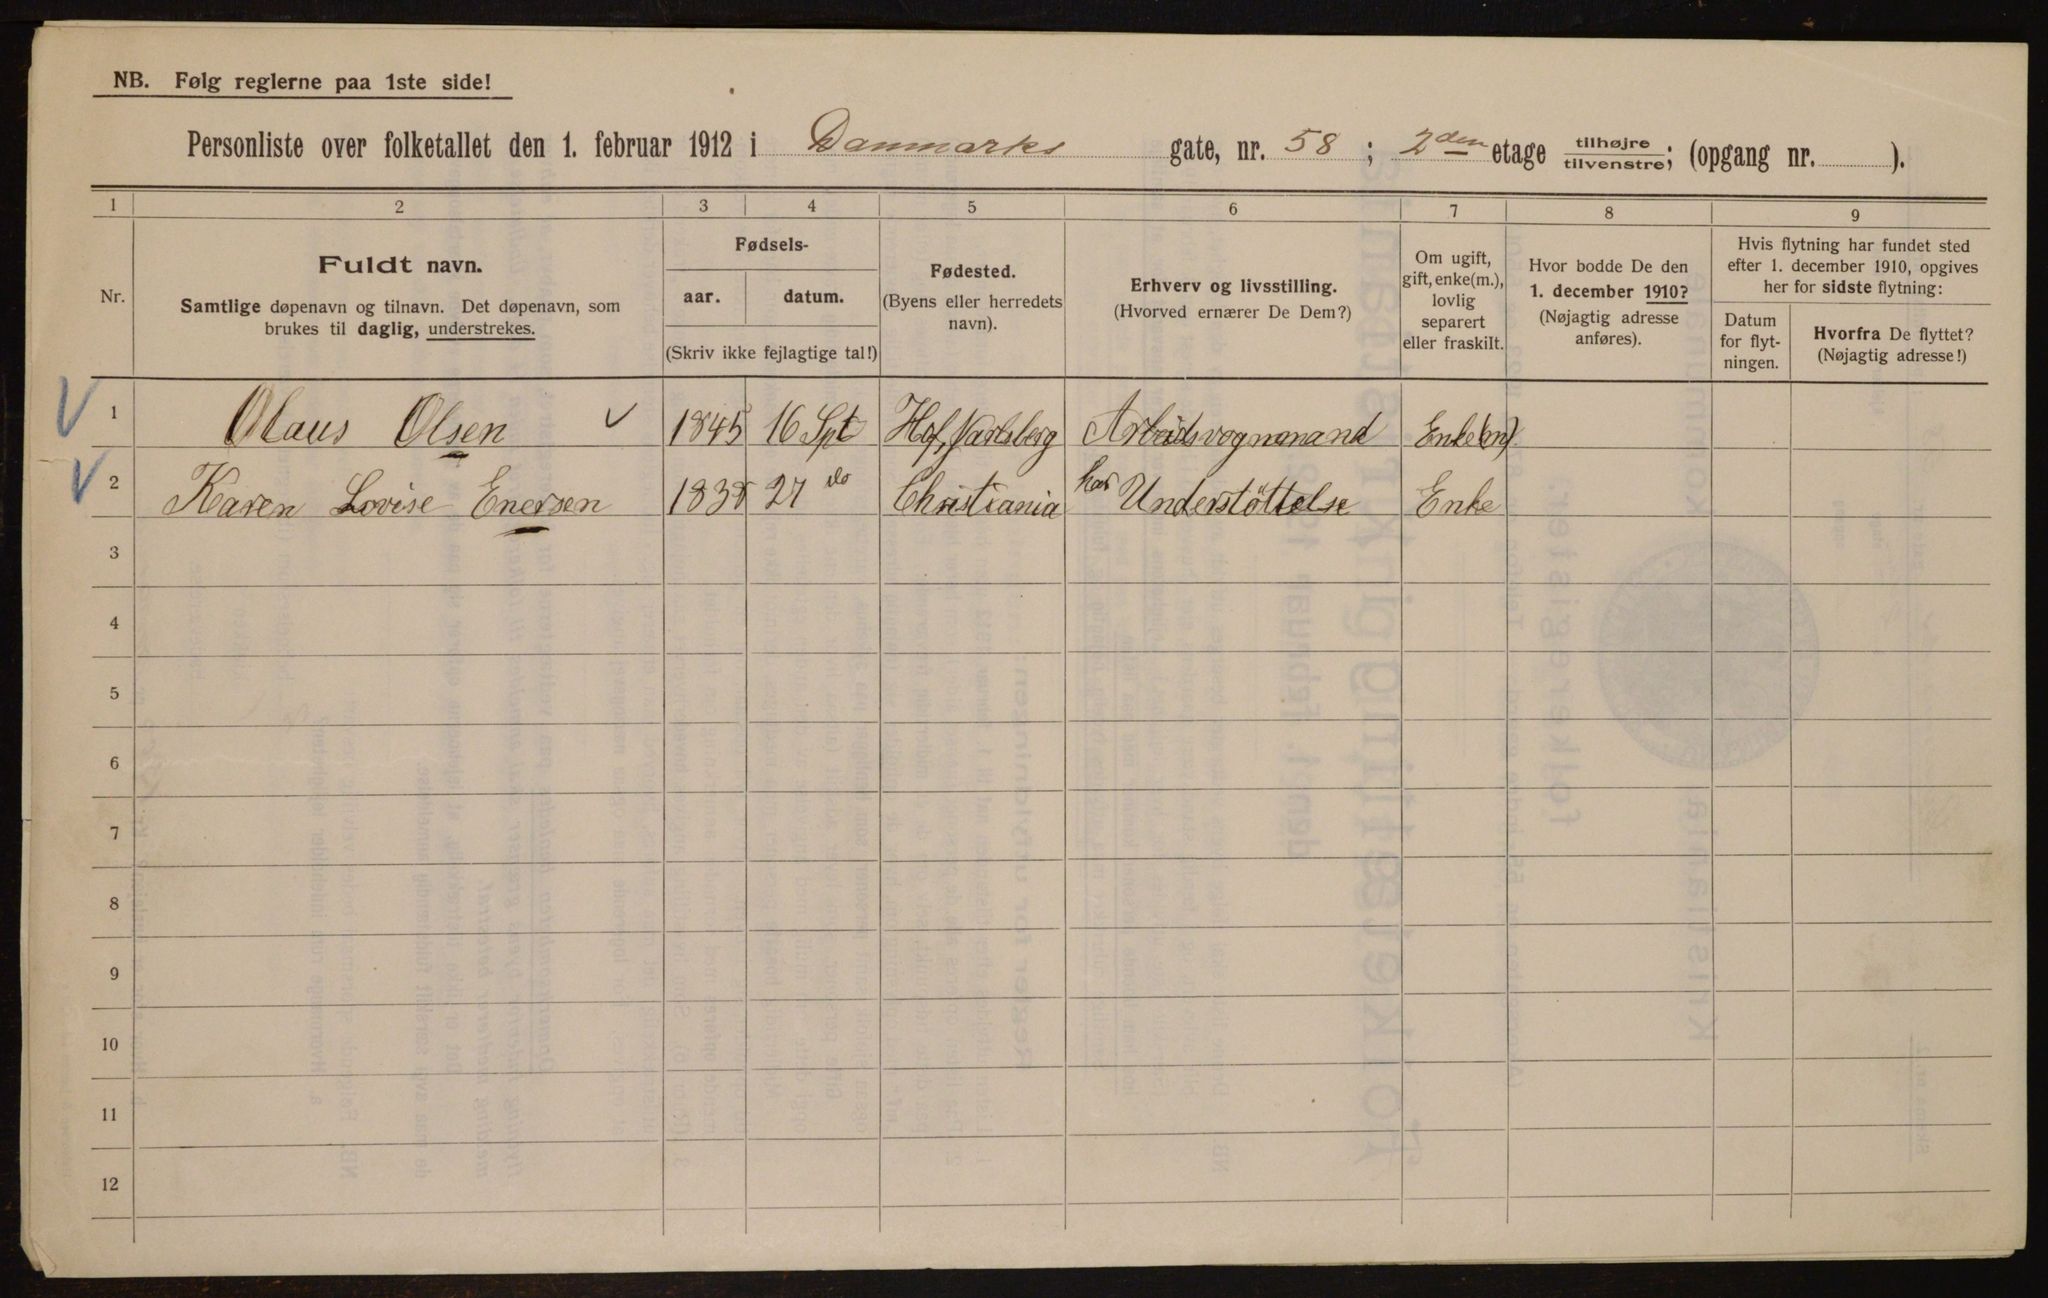 NB. Følg reglerne paa 1ste side!
Personliste over folketallet den 1. februar 1912 i Danmarks gate, nr. 58 ; 2den etage tilhøjre tilvenstre; (opgang nr. ).
1 2 3 4 5 6 7 8 9
Nr.
Fuldt navn.
Samtlige døpenavn og tilnavn. Det døpenavn, som
brukes til daglig, understrekes.
Fødsels-
aar. datum.
(Skriv ikke fejlagtige tal!)
Fødested.
(Byens eller herredets
navn).
Erhverv og livsstilling.
(Hvorved ernærer De Dem?)
Om ugift,
gift, enke(m.),
lovlig
separert
eller fraskilt.
Hvor bodde De den
1. december 1910?
(Nøjagtig adresse
anføres).
Hvis flytning har fundet sted
efter 1. december 1910, opgives
her for sidste flytning:
Datum
for flyt-
ningen.
Hvorfra De flyttet?
(Nøjagtig adresse!)
1 Olaus Olsen 1845 16 Spt Hof, Jarlsberg Arbeidsvognmand Enke(m)
2 Karen Lovise Enersen 27 do Christiania har Understöttelse Enke
3
4
5
6
7
8
9
10
11
12